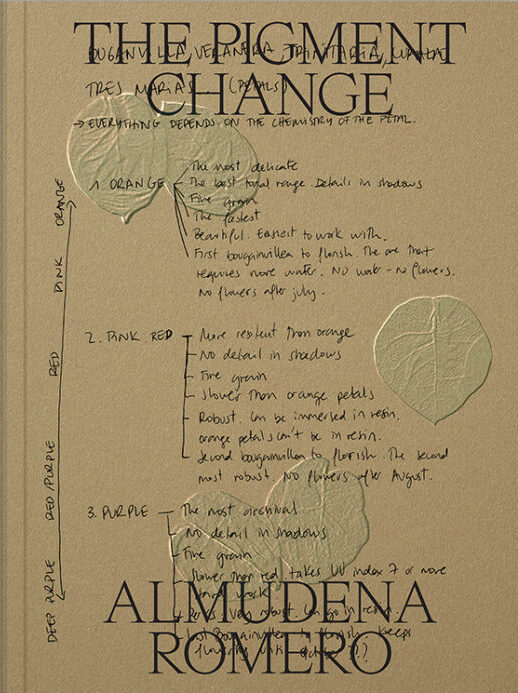 THE PIGMENT
CHANGE
BUGANVILLA, VERANERA, TRINITARIA,
TRES MARIAS (PETALS)
→ EVERYTHING DEPENDS ON THE CHEMISTRY OF THE PETAL.
1. ORANGE
The most delicate
The best tonal range. Details in shadows
Fine grain
The fastest
Beautiful. Easiest to work with.
First bougainvillea to florish. The one that
requires more water. NO water - no flowers.
No flowers after july.
2. PINK RED
More resilient than orange
No detail in shadows
Fine grain
Slower than orange petals
Robust. Can be immersed in resin.
orange petals can't be in resin.
Second bougainvillea to florish. The second
most robust. NO flowers after August.
3. PURPLE
The most archival
No detail in shadows
Fine grain
Slower than red, takes UV index 7 or more
work
very robust. Can go in resin.
Last Bougainvillea to florish. Keeps
flowering until october
ORANGE
PINK
RED
RED/PURPLE
DEEP PURPLE
ALMUDENA
ROMERO